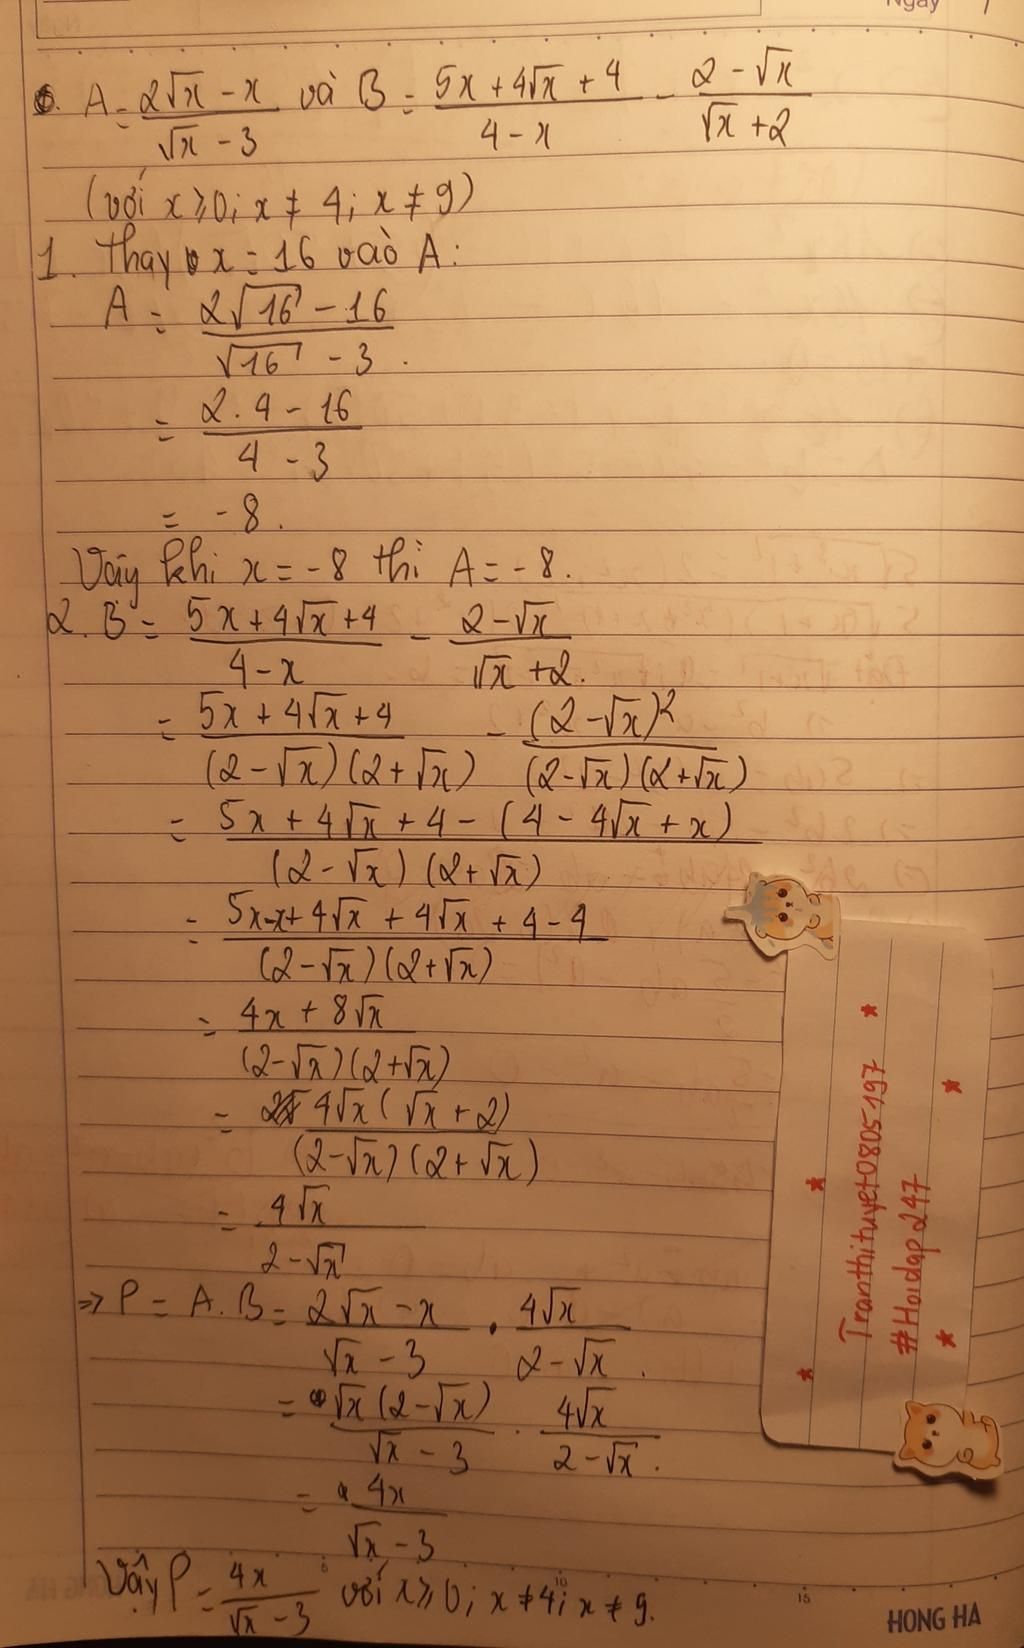 Ngày
6. A = (2√x - x)/(√x - 3) và B = (5x + 4√x + 4)/(4 - x) - (2 - √x)/(√x + 2)
(với x ≥ 0; x ≠ 4; x ≠ 9)
1. Thay x = 16 vào A:
A = (2√16 - 16)/(√16 - 3).
= (2.4 - 16)/(4 - 3)
= -8.
Vây khi x = -8 thì A = -8.
2. B = (5x + 4√x + 4)/(4 - x) - (2 - √x)/(√x + 2).
= (5x + 4√x + 4)/((2 - √x)(2 + √x)) - (2 - √x)²/((2 - √x)(2 + √x))
= (5x + 4√x + 4 - (4 - 4√x + x))/((2 - √x)(2 + √x))
= (5x - x + 4√x + 4√x + 4 - 4)/((2 - √x)(2 + √x))
= (4x + 8√x)/((2 - √x)(2 + √x))
= (4√x(√x + 2))/((2 - √x)(2 + √x))
= (4√x)/(2 - √x)
=> P = A.B = (2√x - x)/(√x - 3) . (4√x)/(2 - √x).
= (√x(2 - √x))/(√x - 3) . (4√x)/(2 - √x).
= (4x)/(√x - 3)
Vậy P = (4x)/(√x - 3) với x ≥ 0; x ≠ 4; x ≠ 9.
Tranthituyet0805197
#Hoidap247
10
15
HONG HA